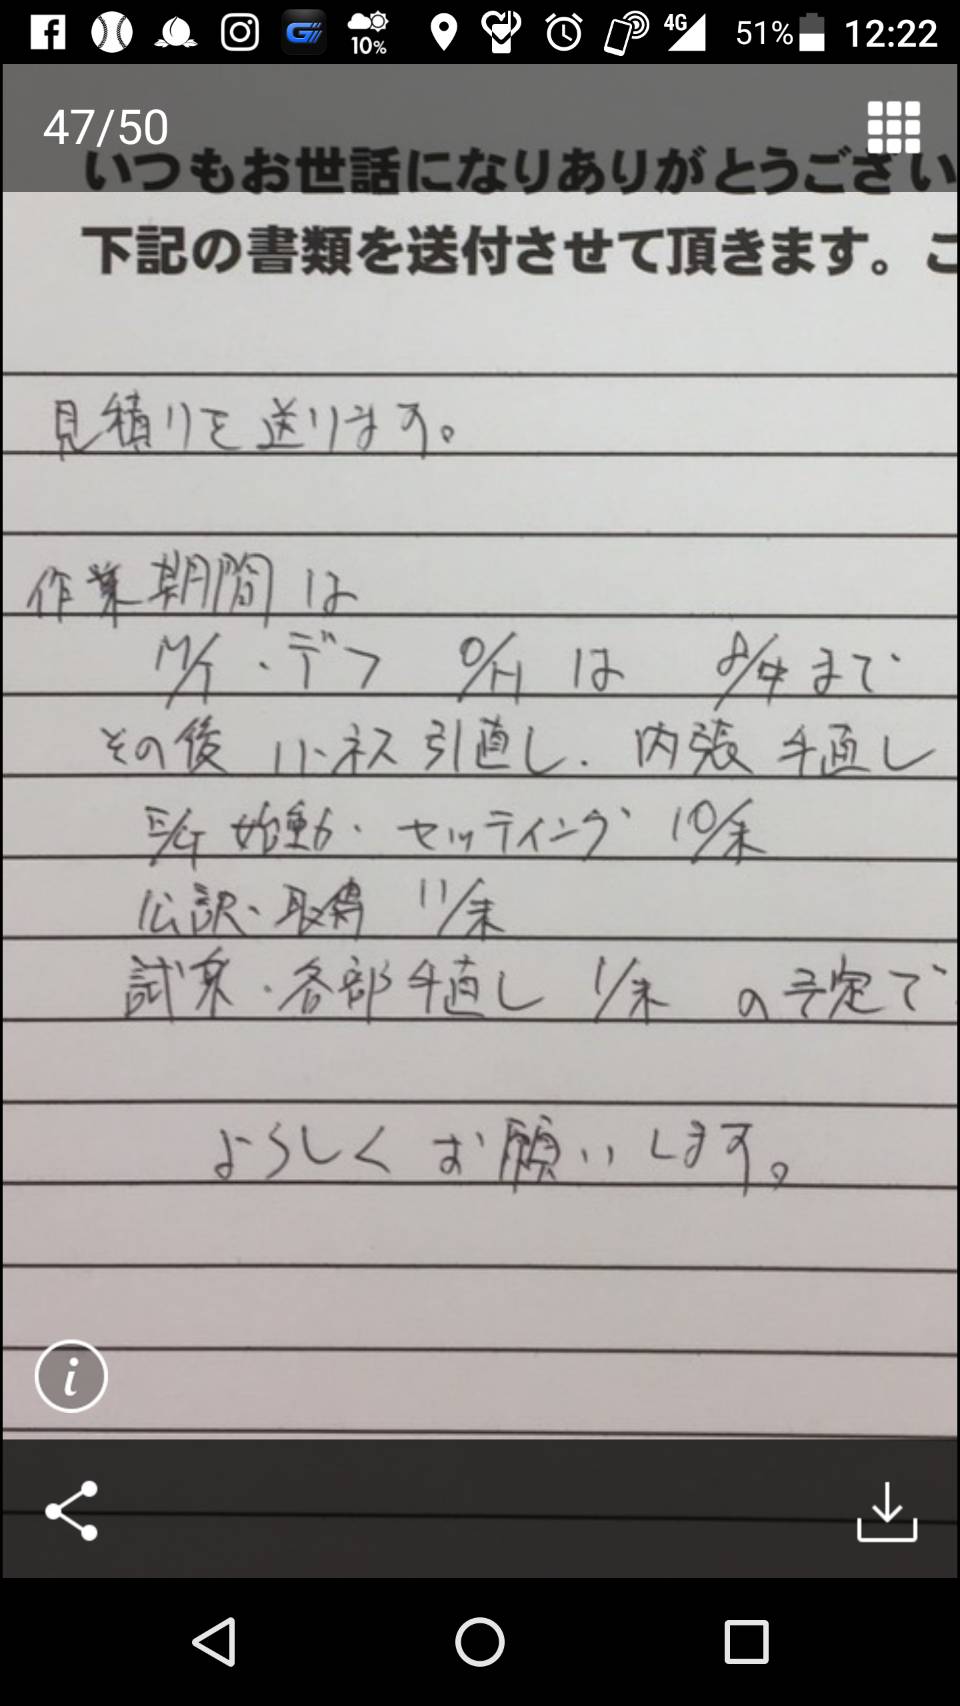 51% 12:22
10%
4G
47/50
いつもお世話になりありがとうござい
下記の書類を送付させて頂きます。こ
見積りを送ります。
作業期間は
M/T・デフ O/Hは 8/中まで
その後 ハーネス引直し.内張手直し
E/G始動・セッティング 10/末
公認・取得 11/末
試乗・各部手直し 1/末 の予定で
よろしくお願いします。